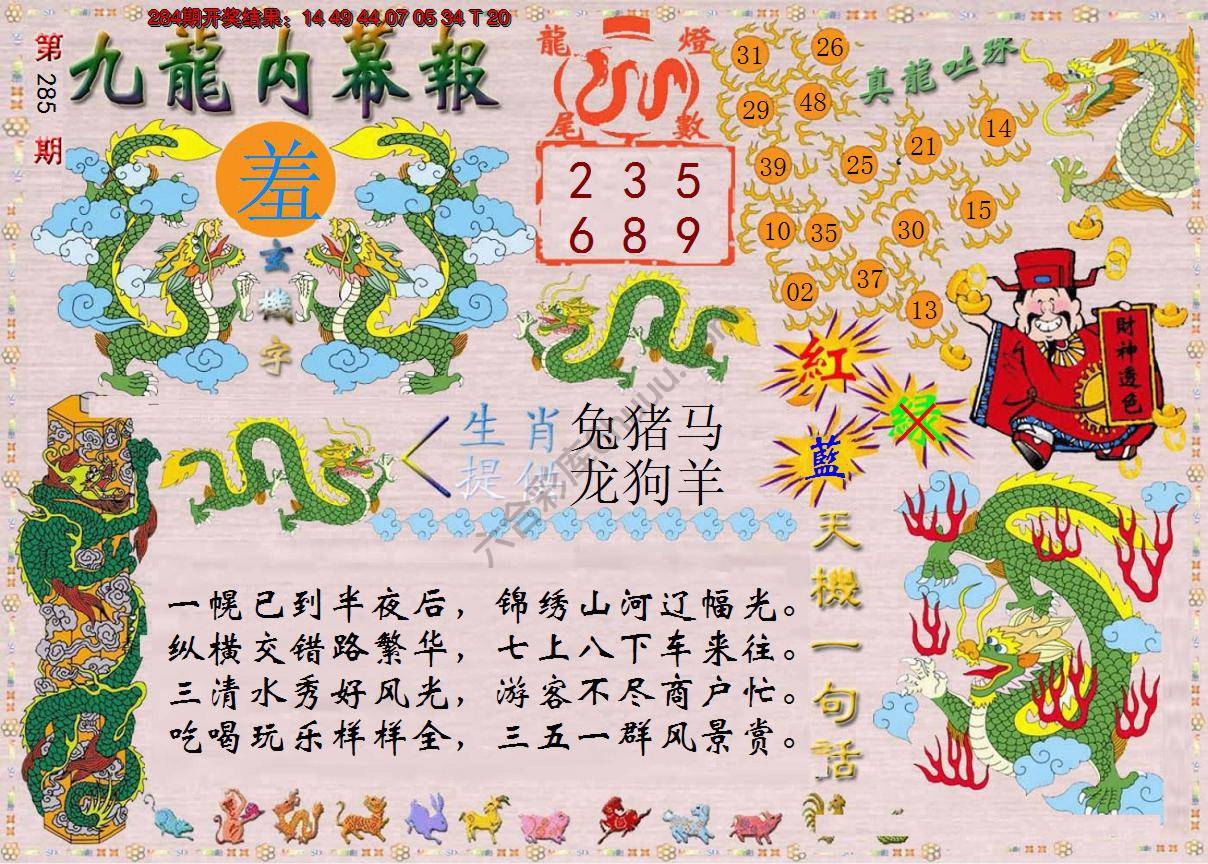 284期开奖结果：14 49 44 07 05 34 T 20
第
285
期
九龍内幕報
羞
玄
機
字
龍
燈
尾
數
2 3 5
6 8 9
真龍吐珠
31
26
29
48
39
25
21
14
10
35
30
15
02
37
13
財神透色
紅
绿
藍
生肖
提供
兔猪马
龙狗羊
天機一句話
一幌已到半夜后，锦绣山河辽幅光。
纵横交错路繁华，七上八下车来往。
三清水秀好风光，游客不尽商户忙。
吃喝玩乐样样全，三五一群风景赏。